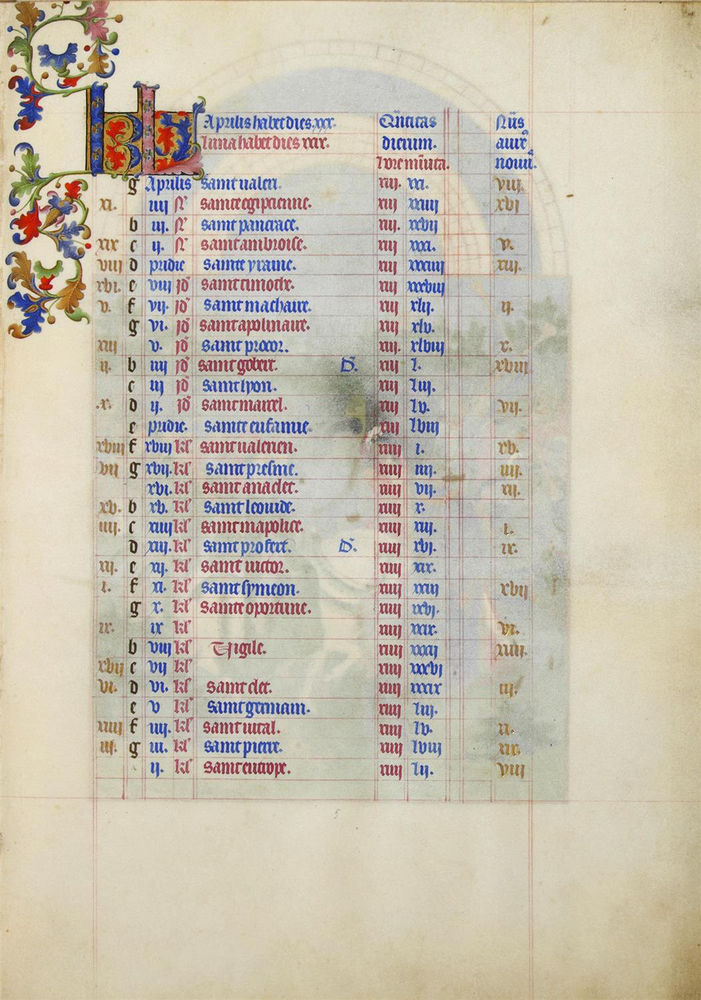 KL Aprilis habet dies xxx. Qñtitas Nūs
luna habet dies xxix. dierum. aurꝰ
hore minuta. nouꝰ.
g Aprilis saint valeri. xiij. xxi. viij.
xi. iiij nº sainte egipcienne. xiij xxiiij xvi
b iij. nº saint pancrace. xiij. xxvij
xix c ij. nº saint ambroise. xiij xxxi. v.
viij d pridie sainte yraine. xiij xxxiiij xiij.
xvi. e viij id' saint timothe. xiij xxxviij
v. f vij. id' saint machaire. xiij xlij. ij.
g vi. id' saint apolinaire. xiij xlv.
xiij v. id' saint procor. xiij. xlviij x.
ij. b iiij id' saint gobert. D'. xiij l. xviij
c iij id' saint lyon. xiij liij.
.x. d ij. id' saint marcel. xiij lv. vij.
e pridie. sainte eufamie. xiij lviij
xviij f xviij kl' saint valerien. xiiij i. xv.
vij g xvij. kl' saint presme. xiiij iiij. iiij.
xvi. kl' saint anaclet. xiiij vij. xij.
xv. b xv. kl' saint leonide. xiiij x.
iiij. c xiiij kl' saint mapolice. xiiij xiij. i.
d xiij. kl' saint profert. D'. xiiij xvi. ix.
xij. e xij. kl' saint victor. xiiij xix.
i. f xi. kl' saint symeon. xiiij xxij xvij
g x. kl' sainte oportune. xiiij xxvi.
ix. ix kl' xiiij xxix. vi.
b viij kl' Vigile. xiiij xxxij xiiij.
xvij c vij kl' xiiij xxxvi
vi. d vi. kl' saint clet. xiiij xxxix iij.
e v kl' saint germain. xiiij liij.
xiiij f iiij. kl' saint vital. xiiij lv. xi.
iij. g iii. kl' saint pierre. xiiij lviij xix.
ij. kl' saint eutrope. xiiij lij. viij